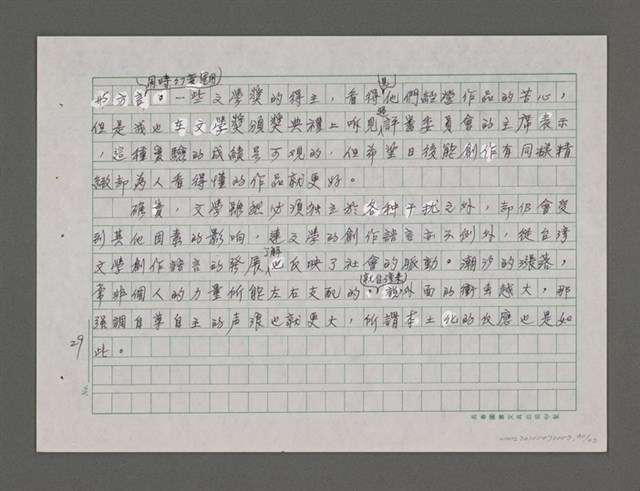 同時的要運用
的方言。一些文學獎的得主，看得他們經營作品的苦心，
但是我也在文學獎頒獎典禮上聽見評審委員會的主席表示
，這種實驗的成績是可觀的，但希望日後能創作有同樣精
緻卻為人看得懂的作品就更好。
確實，文學雖然必須獨立於各种干扰之外，卻仍會受
到其他因素的影响，連文學的創作語言亦不例外，從台灣
了解
文學創作語言的發展也反映了社會的脈動。潮汐的漲落，
就台灣來
常非個人的力量所能左右支配的，外面的衝击越大，那
强調自尊自主的声浪也就更大，所謂本土化的反應也是如
29
此。
No.